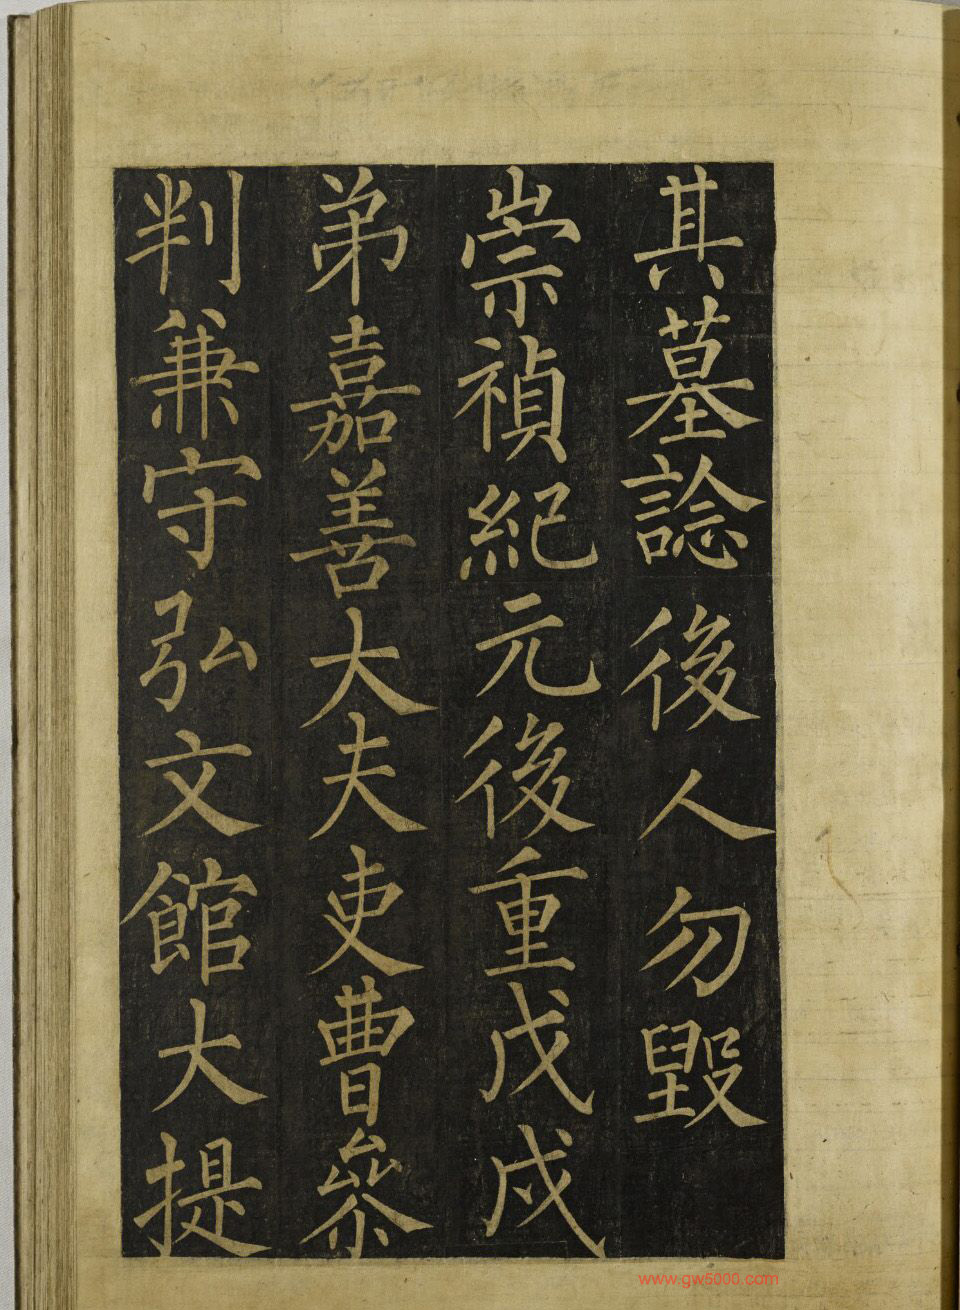 其墓諗後人勿毀
崇禎紀元後重戊戌
弟嘉善大夫吏曹參
判兼守弘文館大提
www.gw5000.com